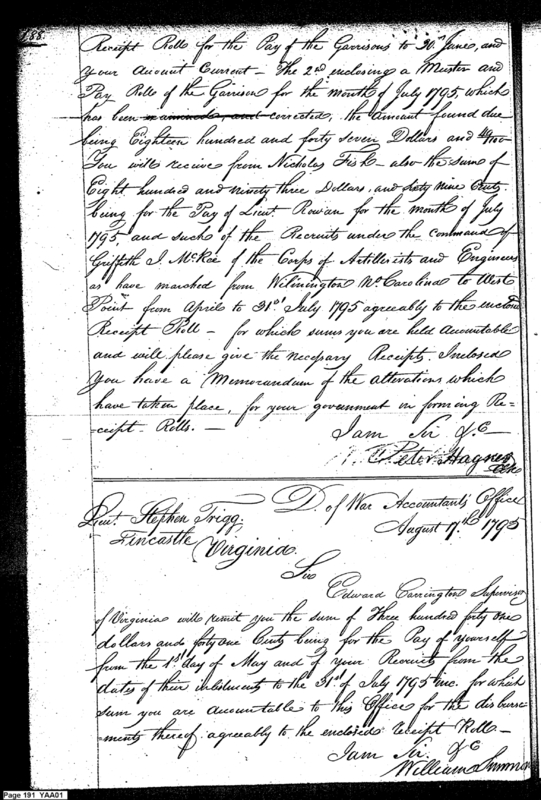 188.
Receipt Rolls for the Pay of the Garrisons to 30th June, and
your Account Current – The 2nd enclosing a Muster and
Pay Rolls of the Garrison for the month of July 1795, which
has been examined and corrected, the amount found due
being Eighteen hundred and forty seven Dollars and /100
You will recieve from Nicholas Fish – also the sum of
Eight hundred and ninety three Dollars, and sixty nine Cents
being for the Pay of Lieut. Rowan for the month of July
1795, and such of the Recruits under the command of
Griffith J. McRae of the Corps of Artillerists and Engineers
as have marched from Wilmington No. Carolina to West
Point from April to 31st July 1795 agreeably to the enclosed
Receipt Roll – for which sums you are held accountable
and will please give the necessary Receipts. Inclosed
You have a Memorandum of the alterations which
have taken place, for your government in forming Re-
-ceipt Rolls. –
I am Sir &c –
Peter Hagner
D. of War Accountants Office
August 17th 1795
Lieut. Stephen Trigg.
Fincastle Virginia.
Sir
Edward Carrington Supervisor
of Virginia will remit you the sum of Three hundred forty one
dollars and forty one Cents being for the Pay of yourself
from the 1st day of May and of your Recruits from the
dates of their inlistments to the 31st of July 1795 inc. for which
sum you are accountable to this Office for the disburse-
-ments thereof agreeably to the enclosed receipt Roll –
I am Sir. &c
William Simmons
Page 191 YAA01